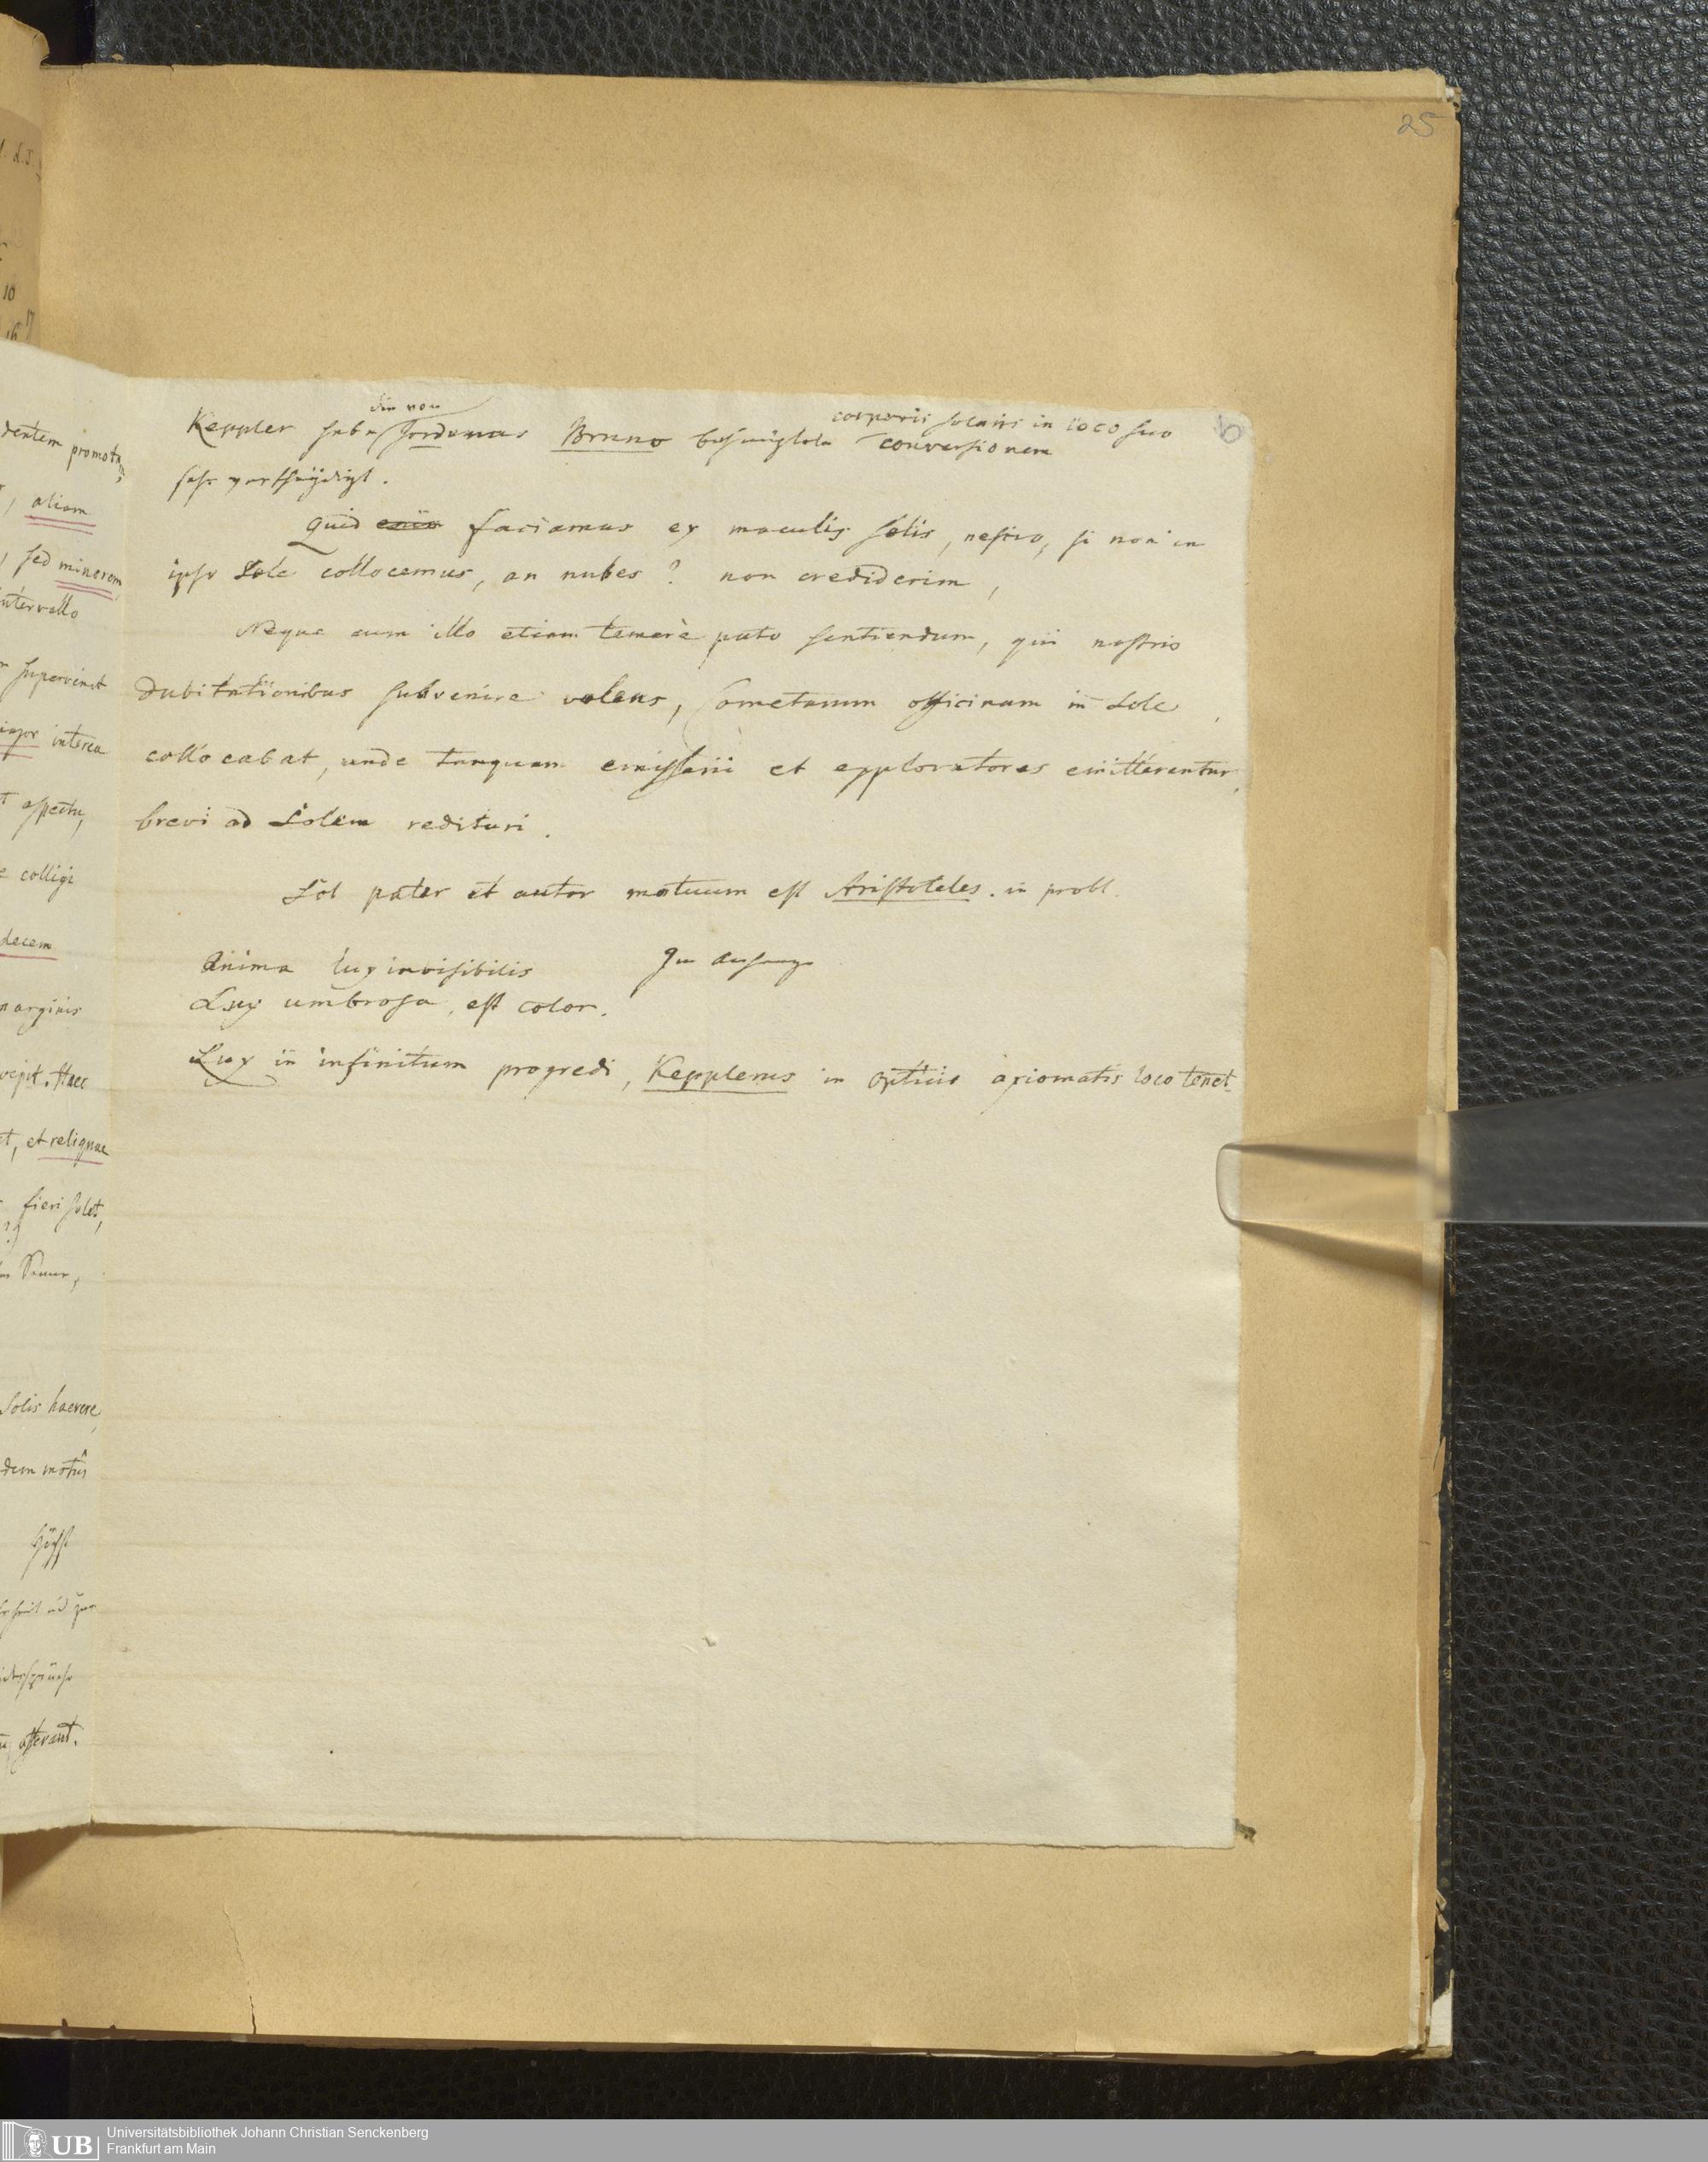 25
b
die von
corporis solaris in loco suo
Keppler habe Jordanus Bruno behauptete conversionem
sehr vertheidigt.
Quid enim faciamus ex maculis solis, nescio, si non in
ipso Sole collocemus, an nubes? non crediderim,
Neque cum illo etiam temerè puto sentiendum, qui nostris
dubitationibus subvenire volens, Cometarum officinam in Sole
collocabat, unde tanquam emissarii et exploratores emitterentur,
brevi ad Solem redituri.
Sol pater et autor motuum est Aristoteles. in probl.
Anima lux invisibilis
Lux umbrosa, est color.
Lux in infinitum progredi, Kepplerus in opticis axiomatis loco tenet.
dentem promota,
, aliam
, sed minorem,
intervallo
supervenit
major interea
aspectu,
colligi
decem
marginis
cepit. Haec
et, et reliquae
fieri solet,
Solis haerere,
dem motus
Universitätsbibliothek Johann Christian Senckenberg
Frankfurt am Main
UB